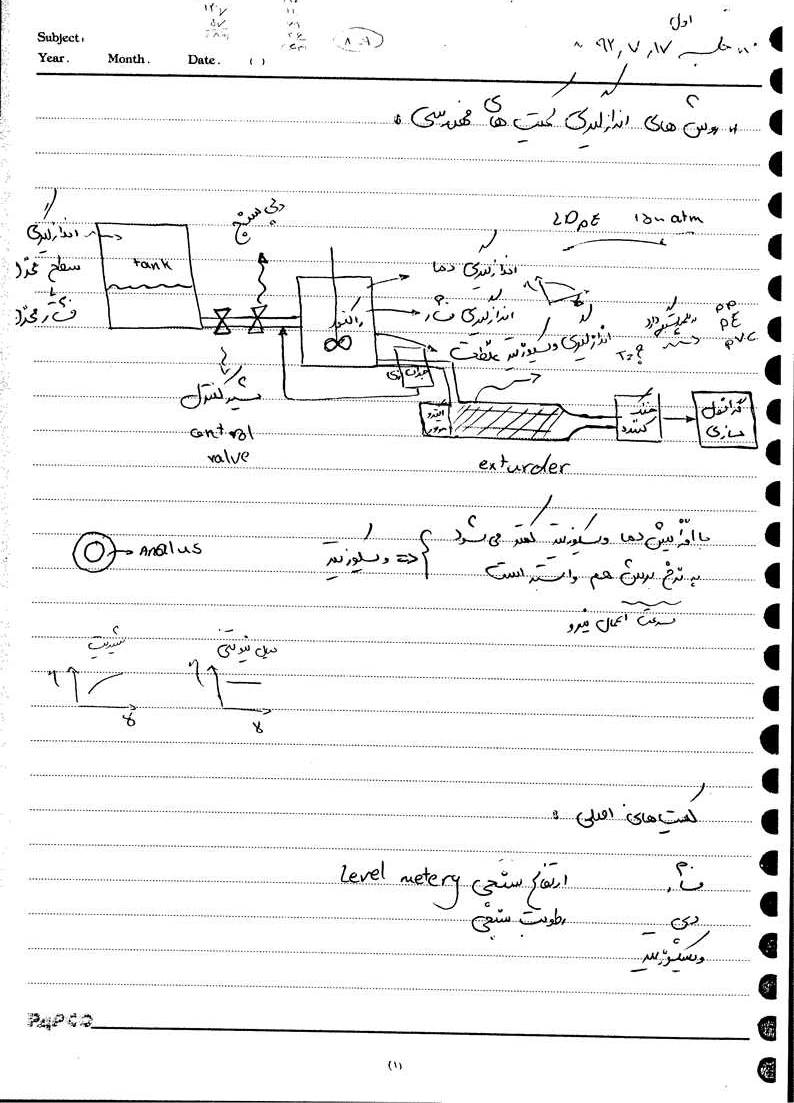 Subject:
Year. Month. Date. ( )
جلسه اول ۹۲,۷,۱۷
روش های اندازگیری کمیت های مهندسی :
دبی سنج
LDPE atm
اندازگیری
سطح مخزن
فشار مخزن
tank
راکتور
اندازگیری دما
اندازگیری فشار
اندازگیری ویسکوزیته غلظت
T=?
PP
PE
PVC
شیر کنترل
control
valve
exturder
خنک
کننده
گرانول
سازی
Analus
ویسکوزیته
با افزایش دما ویسکوزیته کمتر می شود
به نرخ برش هم وابسته است
سرعت اعمال نیرو
η γ
سیال نیوتنی
η γ
کمیت های اصلی :
فشار ارتفاع سنجی Level metery
دبی رطوبت سنجی
ویسکوزیته
PAPCO
(۱)